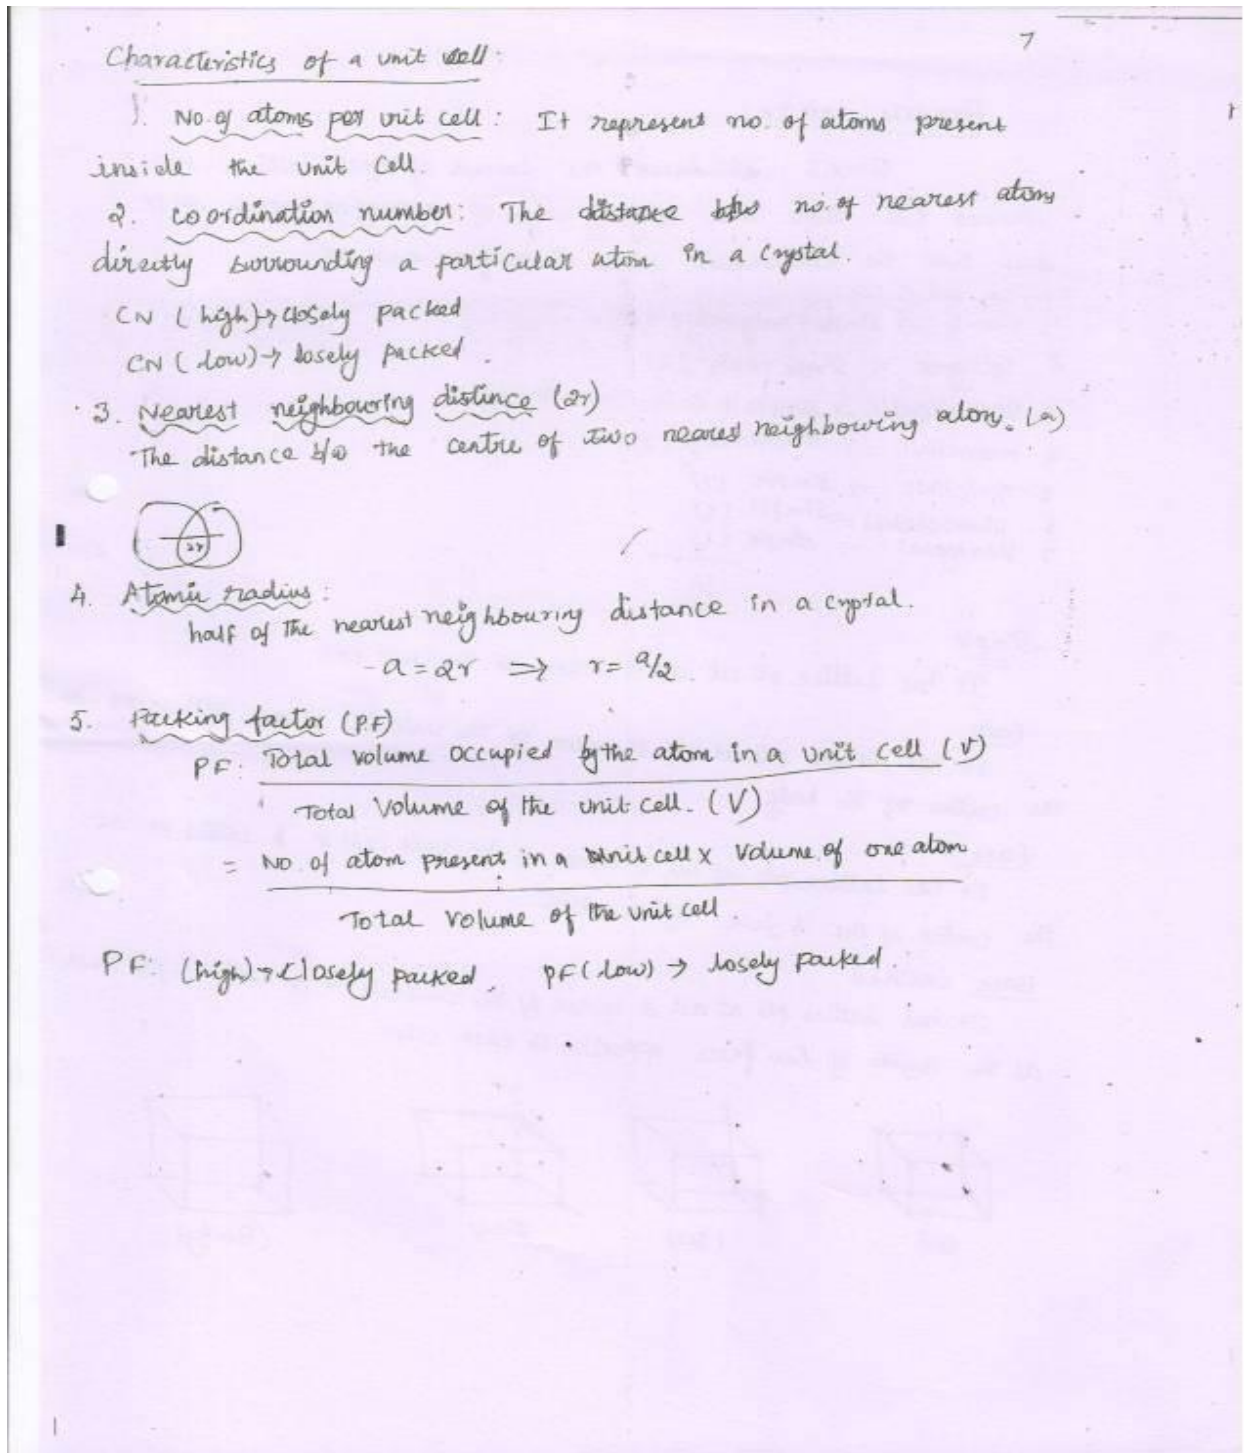 7
Characteristics of a unit cell:
1. No. of atoms per unit cell: It represent no. of atoms present
inside the unit cell.
2. coordination number: The distance b/w no. of nearest atoms
directly surrounding a particular atom in a crystal.
CN (high)→ closely packed
CN (low)→ losely packed.
3. Nearest neighbouring distince (2r)
The distance b/w the centre of two nearest neighbouring atom. (a)
2r
4. Atomic radius:
half of the nearest neighbouring distance in a crystal.
a = 2r ⇒ r = a/2.
5. Packing factor (P.F)
PF: Total volume occupied by the atom in a unit cell (v)
Total volume of the unit cell. (V)
= No. of atom present in a unit cell x volume of one atom
Total volume of the unit cell.
PF: (high)→ closely packed, PF (low) → losely packed.